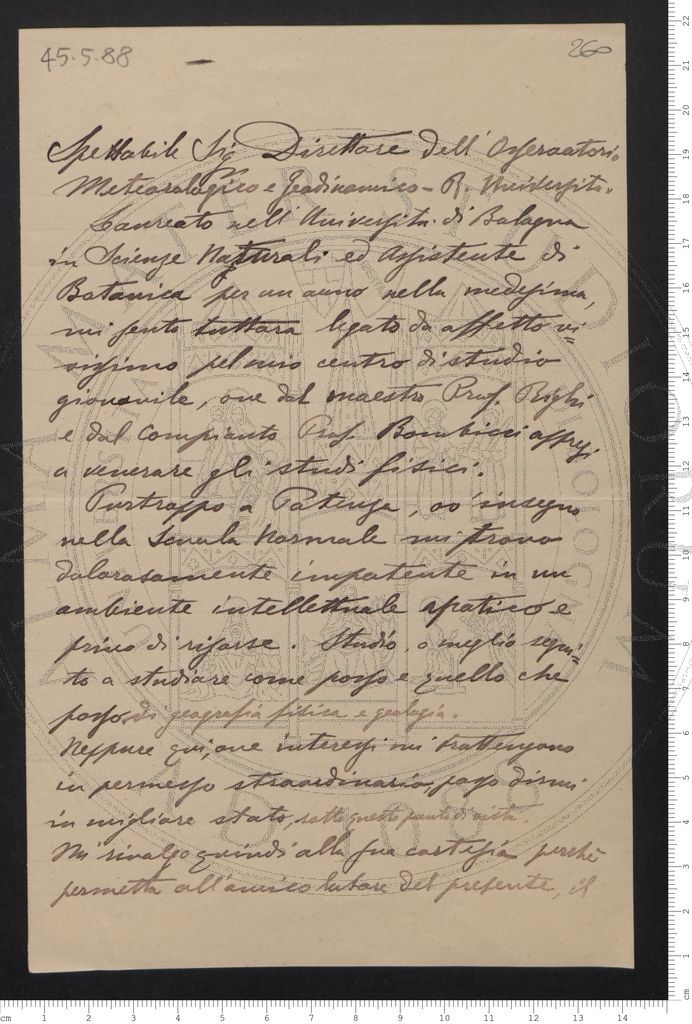 45.5.88
260
Spettabile Sig. Direttore dell'Osservatorio
Meteorologico e Geodinamico - R. Università.
Laureato nell'Università di Bologna
in Scienze Naturali ed Assistente di
Botanica per un anno nella medesima,
mi sento tuttora legato da affetto vi=
vissimo pel mio centro di studio
giovanile, ove dal maestro Prof. Righi
e dal compianto Prof. Bombicci appresi
a venerare gli studi fisici.
Purtroppo a Potenza, ov'insegno
nella Scuola Normale mi trovo
dolorosamente impotente in un
ambiente intellettuale apatico e
privo di risorse. Studio, o meglio segui=
to a studiare come posso e quello che
posso, di geografia fisica e geologia.
Neppure qui, ove interessi mi trattengono
in permesso straordinario, posso dirmi
in migliore stato, sotto questo punto di vista.
Mi rivolgo quindi alla sua cortesia perchè
permetta all'amico latore del presente, il